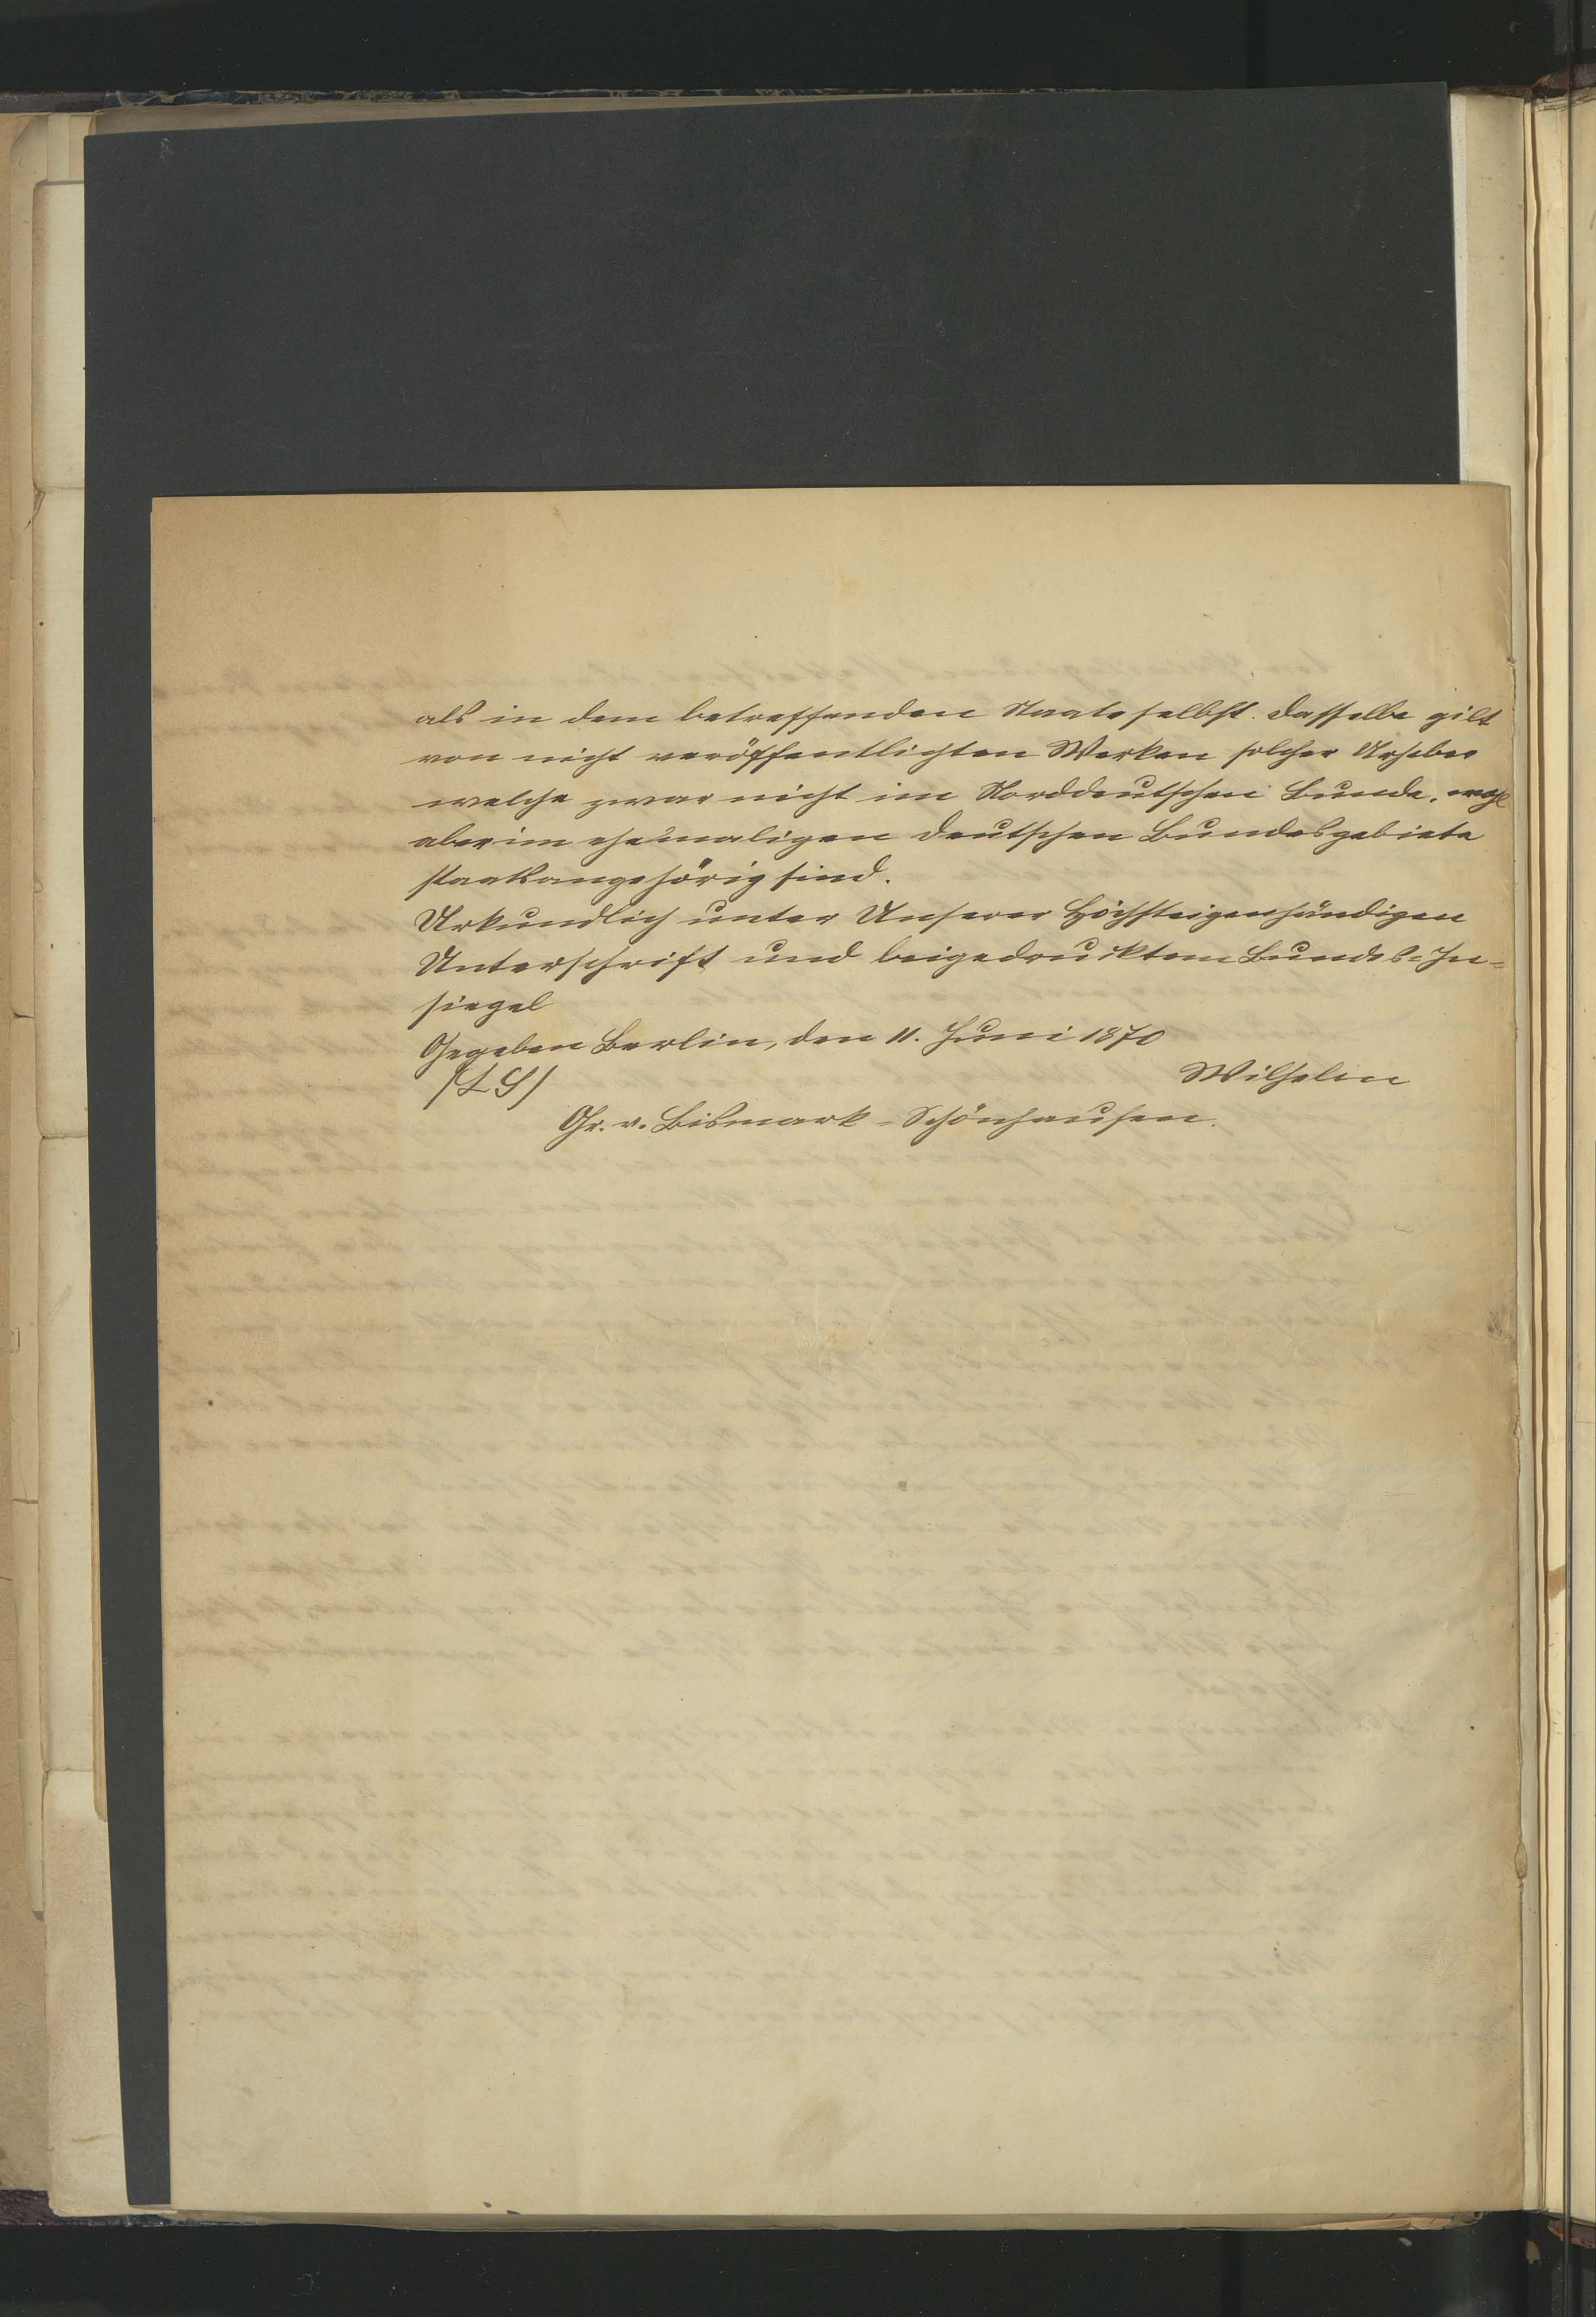 als in dem betreffenden Staate selbst. Dasselbe gilt
von nicht veröffentlichten Werken solcher Urheber
welche zwar nicht im Norddeutschen Bunde, wohl
aber im ehemaligen deutschen Bundesgebiete
staatsangehörig sind.
Urkundlich unter Unserer Höchsteigenhändigen
Unterschrift und beigedrucktem Bundes-In-
siegel
Gegeben Berlin, den 11. Juni 1870
(LS) Wilhelm
Gr. v. Bismark-Schönhausen.